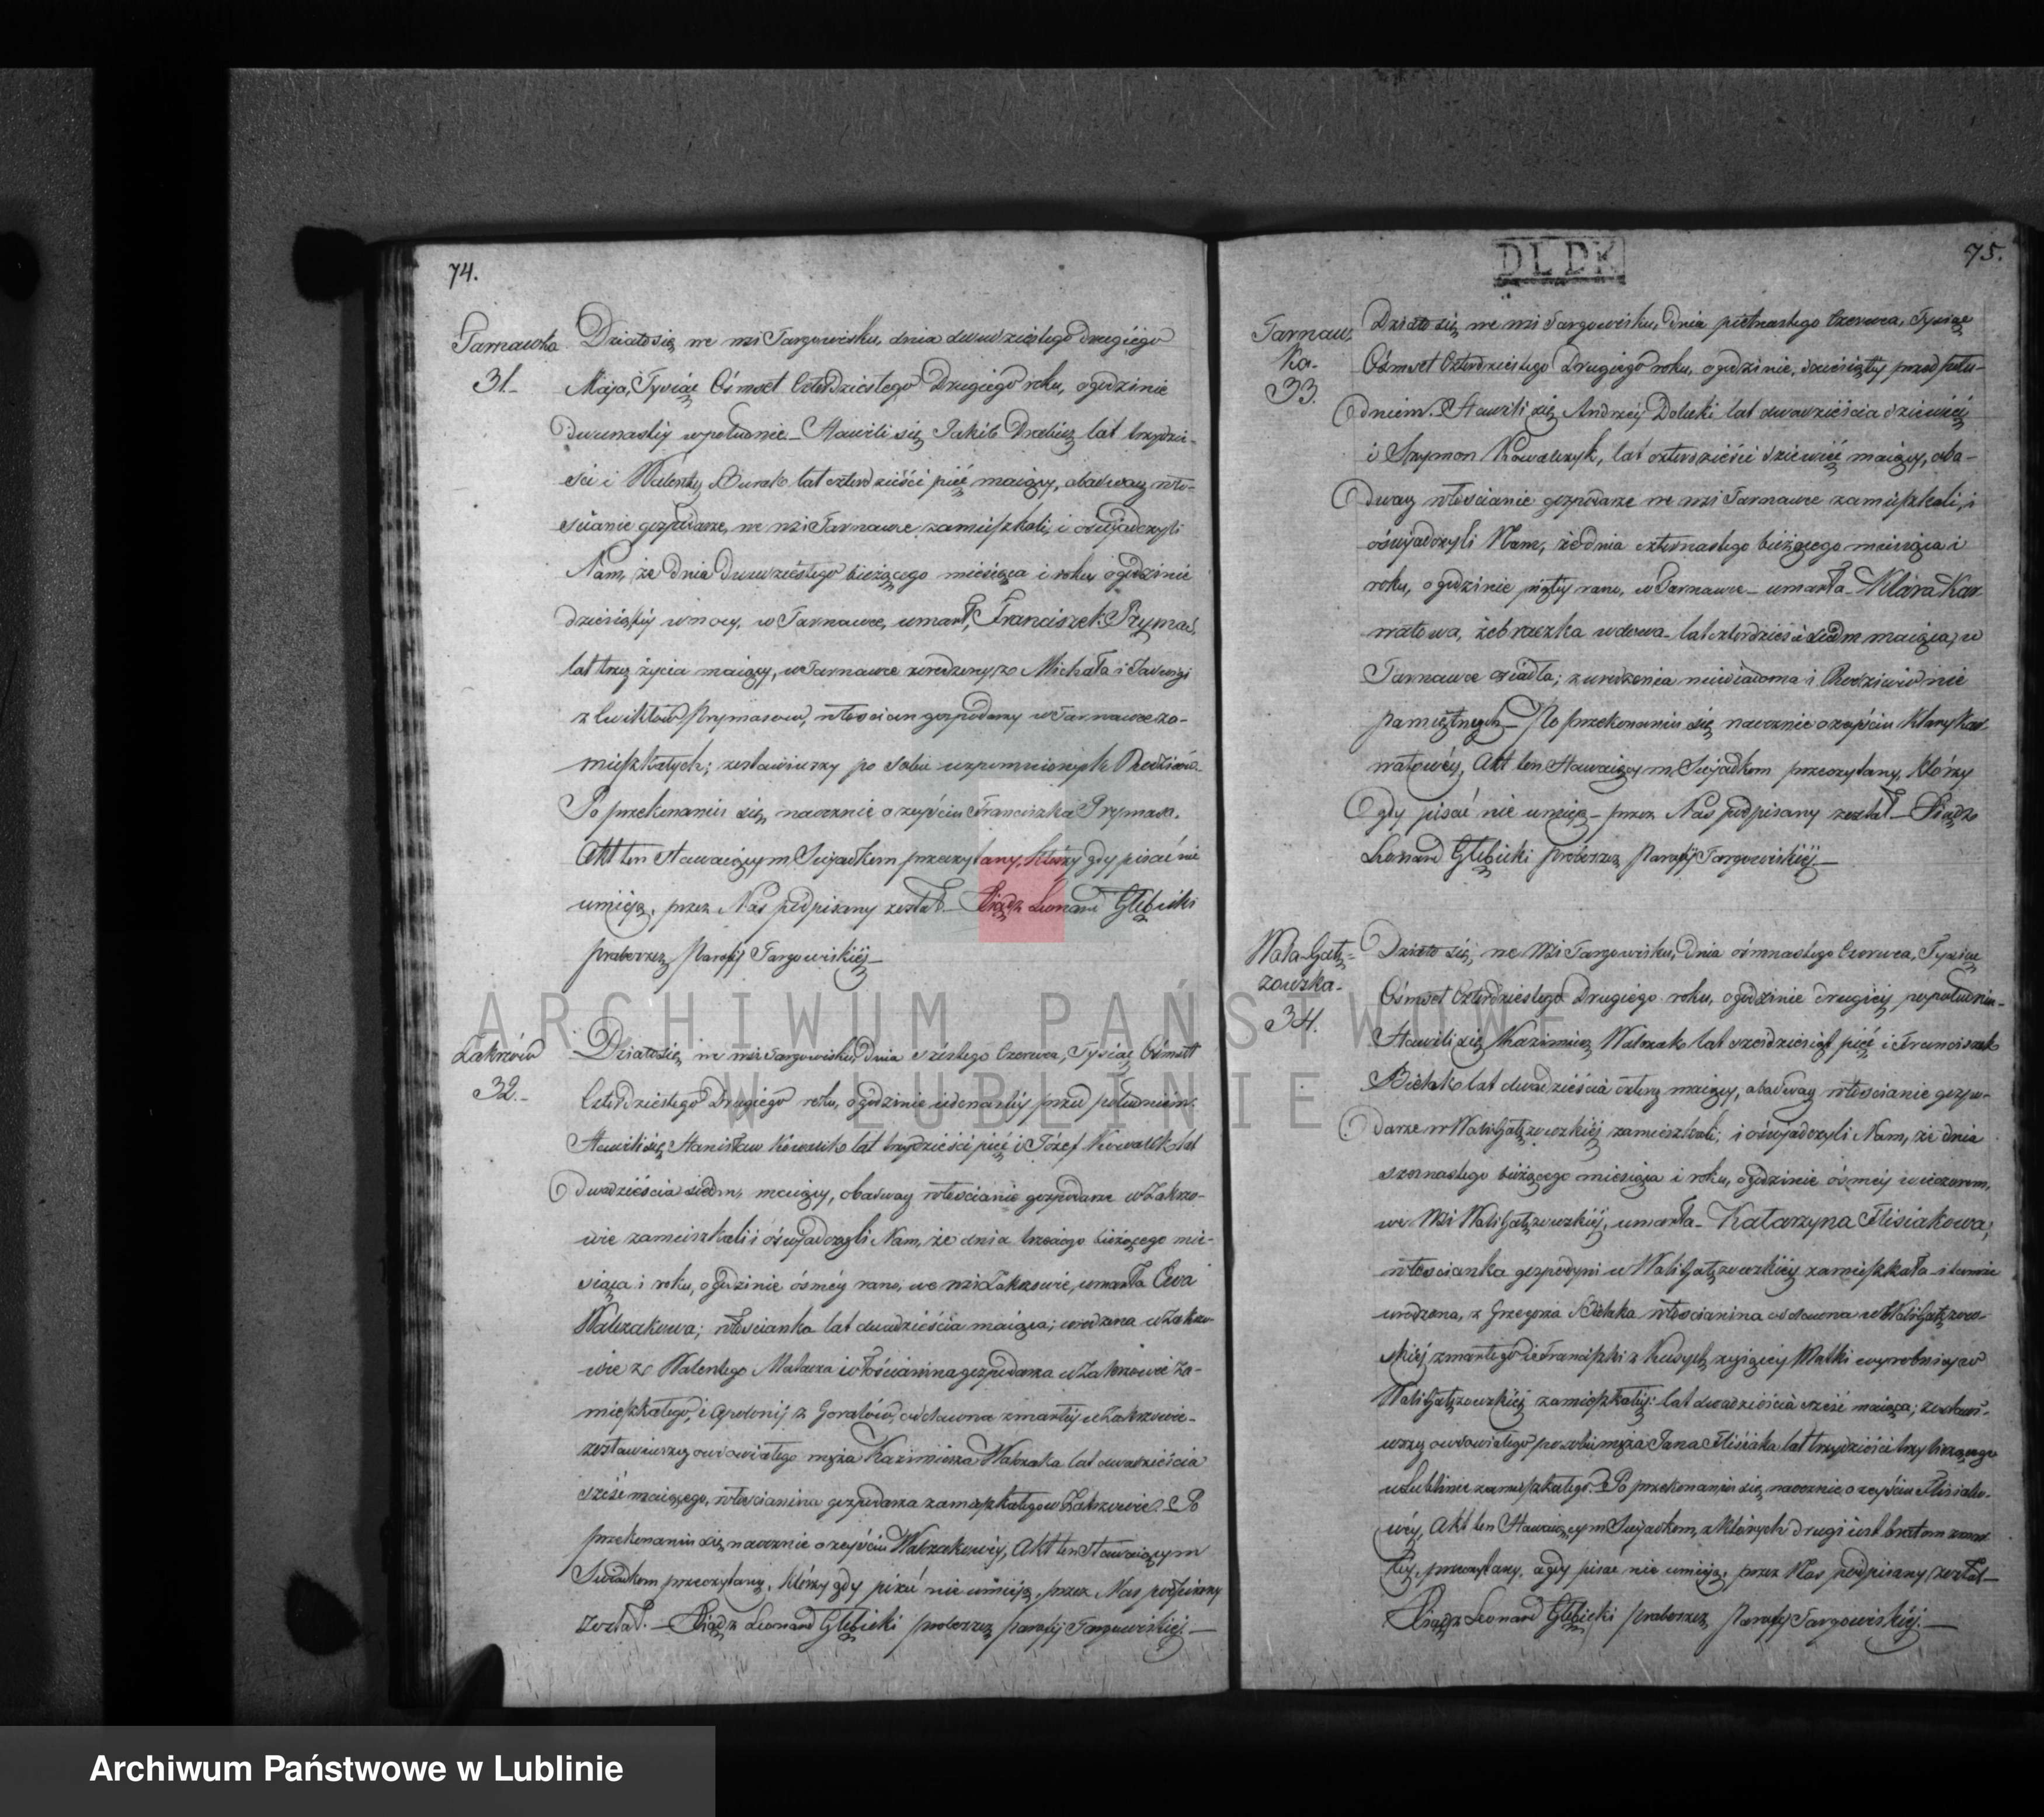 74.
Tarnawka
31.
Działo się we wsi Targowisku, dnia dwudziestego drugiego
Maja, Tysiąc Ośmset Czterdziestego Drugiego roku, o godzinie
dwunastéy w południe – Stawili się Jakób Drabisz lat trzydzie-
ści i Walenty Burak lat czterdzieści pięć maiący, obadway wło-
ścianie gospodarze, we wsi Tarnawce zamieszkali, i oświadczyli
Nam, że dnia dwudziestego bieżącego miesiąca i roku, o godzinie
dziesiątéy w nocy, w Tarnawce, umarł, Franciszek Prymas,
lat trzy życia maiący, w Tarnawce urodzony, z Michała i Jadwigi
z Cwiklów Prymasów, włościan gospodarzy w Tarnawce za-
mieszkałych; zostawiwszy po sobie wspomnionych Rodziców
Po przekonaniu się naocznie o zeyściu Franciszka Prymasa,
Akt ten stawaiącym Swiadkom przeczytany, którzy gdy pisać nie
umieją, przez Nas podpisany został – Xiądz Leonard Głębicki
proboszcz Parafij Targowiskiéj –
Zakrzów
32.–
Działo się we wsi Targowisku, dnia szóstego Czerwca, Tysiąc Ośmset
Czterdziestego Drugiego roku, o godzinie iedenastéy przed południem.
Stawili się Stanisław Kowalik lat trzydzieści pięć i Józef Kowalik lat
dwadzieścia siedm, maiący, obadway włościanie gospodarze w Zakrzo-
wie zamieszkali i oświadczyli Nam, że dnia trzeciego bieżącego mie-
siąca i roku, o godzinie ósméy rano, we wsi Zakrzowie, umarła Ewa
Walczakowa; włościanka lat dwadzieścia maiąca; urodzona w Zakrzo-
wie z Walentego włościanina gospodarza w Zakrzowie za-
mieszkałego, i Apolonij z Goralów, oddawna zmarłéy w Zakrzowie –
zostawiwszy owdowiałego męża Kazimierza Walczaka lat dwadzieścia
sześć maiącego, włościanina gospodarza zamieszkałego w Zakrzowie. Po
przekonaniu się naocznie o zeyściu Walczakowéy, Akt ten stawaiącym
Swiadkom przeczytany, którzy gdy pisać nie umieją, przez Nas podpisany
został. – Xiądz Leonard Głębicki proboszcz parafij Targowiskiéj. –
DLDK
75.
Tarnaw,
ka.
33.
Działo się we wsi Targowisku, dnia piętnastego Czerwca, Tysiąc
Ośmset Czterdziestego Drugiego roku, o godzinie, dziesiątéy przed połu-
dniem. Stawili się Andrzéy Dolecki lat dwadzieścia dziewięć
i Szymon Kowalczyk, lat czterdzieści dziewięć maiący, oba-
dway włościanie gospodarze we wsi Tarnawce zamieszkali, i
oświadczyli Nam, że dnia czternastego bieżącego miesiąca i
roku, o godzinie piątéy rano, w Tarnawce – umarła – Klara Kar
watowa, żebraczka wdowa – lat czterdzieści siedm maiąca, w
Tarnawce osiadła; z urodzenia niewiadoma i Rodziców nie
pamiętnych – Po przekonaniu się naocznie o zeyściu Klary Kar-
watowéy, Akt ten Stawaiącym Swiadkom przeczytany, którzy
gdy pisać nie umieją – przez Nas podpisany został – Xiądz
Leonard Głębicki proboszcz Parafij Targowiskiéj. –
Wola Gałę-
zowzka.
34.
Działo się, we Wsi Targowisku, dnia ośmnastego Czerwca, Tysiąc
Ośmset Czterdziestego Drugiego roku, o godzinie drugiéy popołudniu –
Stawili się Kazimierz Walczak lat sześćdziesiąt pięć i Franciszek
Bielak lat dwadzieścia cztery maiący, obadway włościanie gospo-
darze w Woli Gałęzowzkiéj zamieszkali; i oświadczyli Nam, że dnia
szesnastego bieżącego miesiąca i roku, o godzinie ósméy wieczorem,
we Wsi Woli Gałęzowzkiéj, umarła – Katarzyna Flisiakowa,
włościanka gospodyni w Woli Gałęzowzkiéj zamieszkała – i tamże
urodzona, z Grzegorza Bielaka włościanina oddawna w Woli Gałęzow-
skiéj zmarłego i Franciszki z żyjącéy Matki wyrobnicy w
Woli Gałęzowzkiéj zamieszkałéj: lat dwadzieścia sześć maiąca; zostawi-
wszy owdowiałego po sobie męża Jana Flisiaka lat trzydzieści trzy liczącego
w Lublinie zamieszkałego. Po przekonaniu się naocznie o zeyściu Flisiako-
wéy, Akt ten Stawaiącym Swiadkom, z których drugi iest bratem zmar
łéy, przeczytany, a gdy pisać nie umieją, przez Nas podpisany został –
Xiądz Leonard Głębicki proboszcz Parafij Targowiskiéj. –
ARCHIWUM PAŃSTWOWE
W LUBLINIE
Archiwum Państwowe w Lublinie